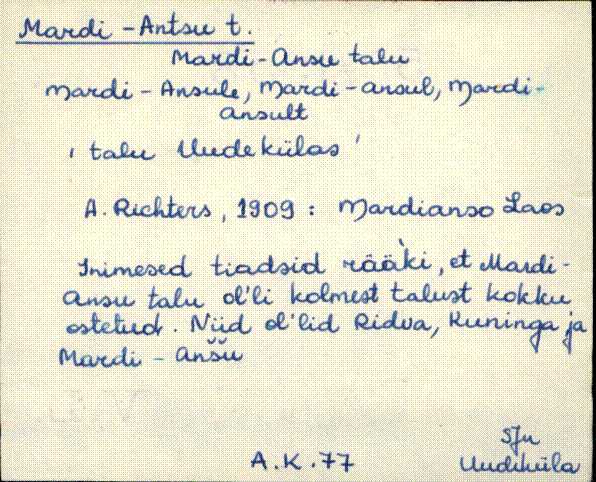 Mardi-Antsu t.
Mardi-Ansu talu
Mardi-Ansule, Mardi-ansul, Mardi-
ansult
'talu Uudekülas'
A. Richters, 1909: Mardianso Laos
Inimesed tiadsid rääk̀i, et Mardi-
Ansu talu ol'li kolmest talust kokku
ostetud. Niid ol'lid Ridva, Kuninga ja
Mardi-Anšŭ
SJn
A.K.77
Uudiküla